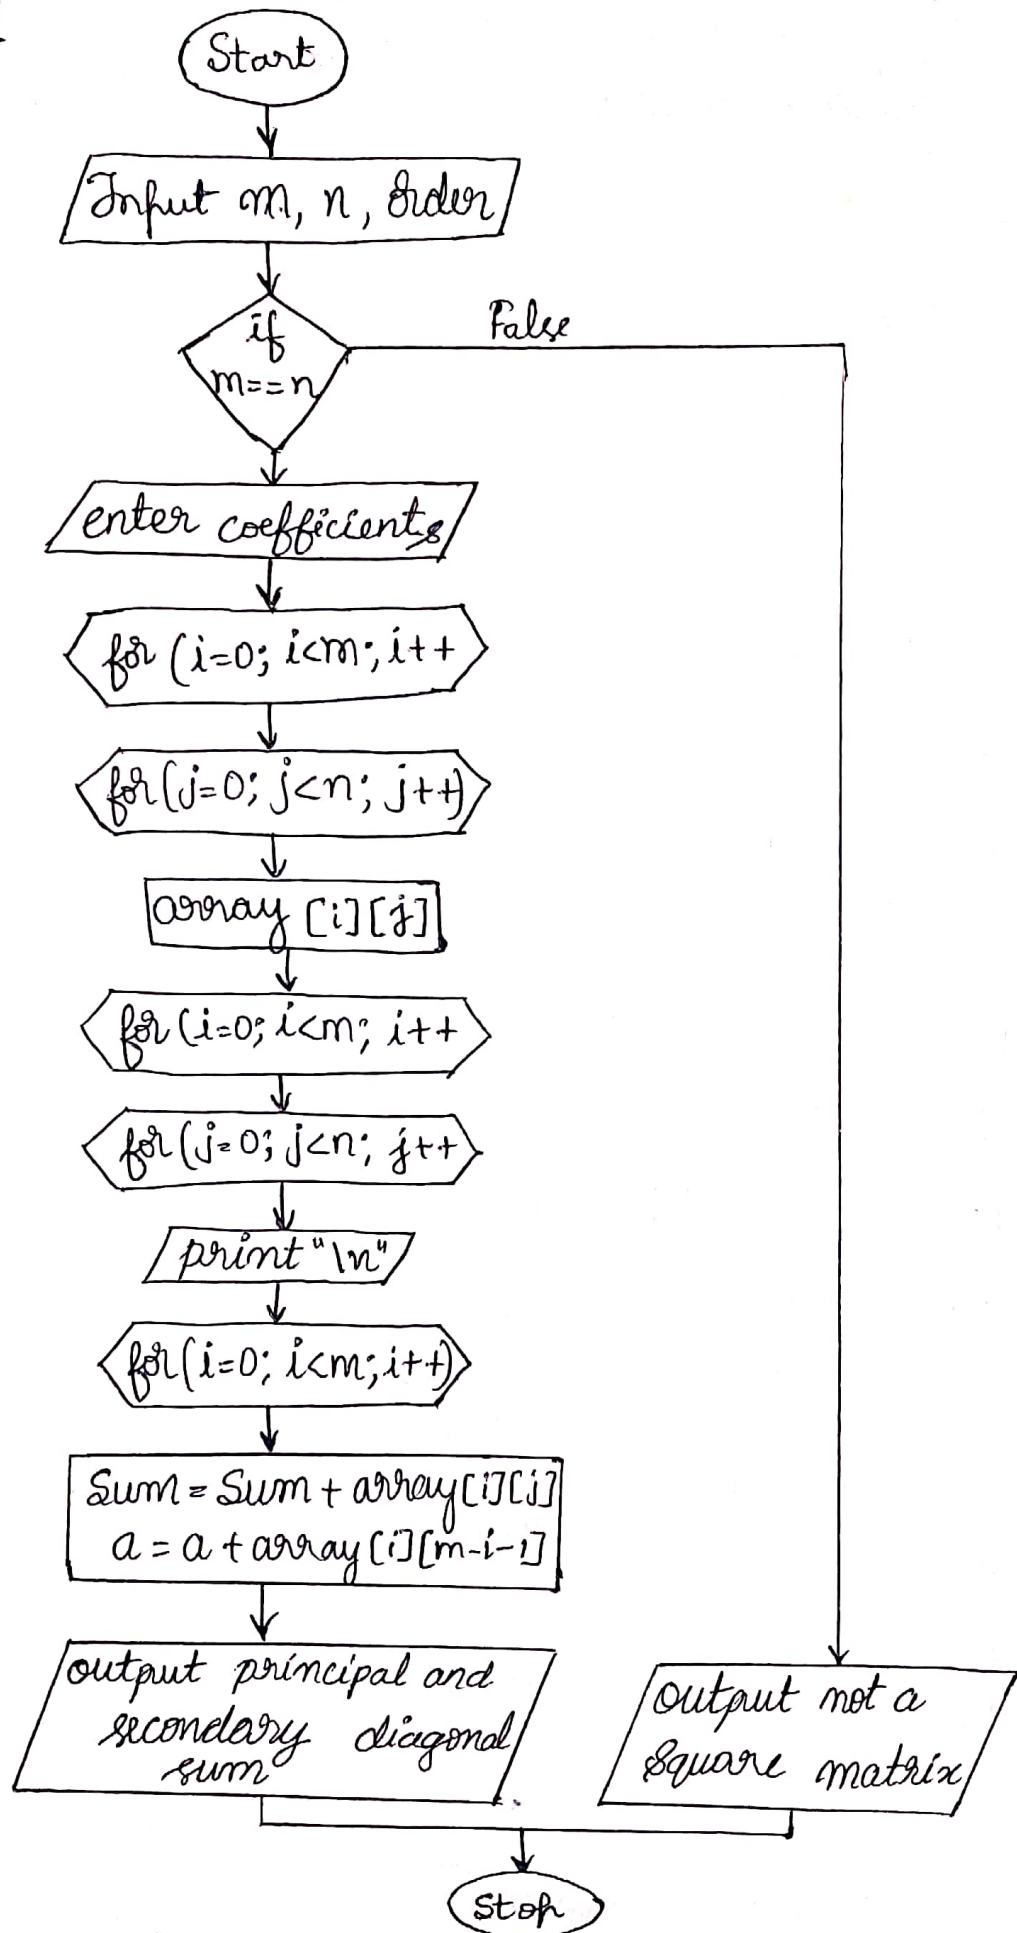 Start
Input m, n, order
if
m==n
False
enter coefficients
for (i=0; i<m; i++
for (j=0; j<n; j++)
array [i][j]
for (i=0; i<m; i++
for (j=0; j<n; j++
print "\n"
for (i=0; i<m; i++)
Sum = Sum + array[i][j]
a = a + array[i][m-i-1]
output principal and
secondary diagonal
sum
output not a
square matrix
Stop